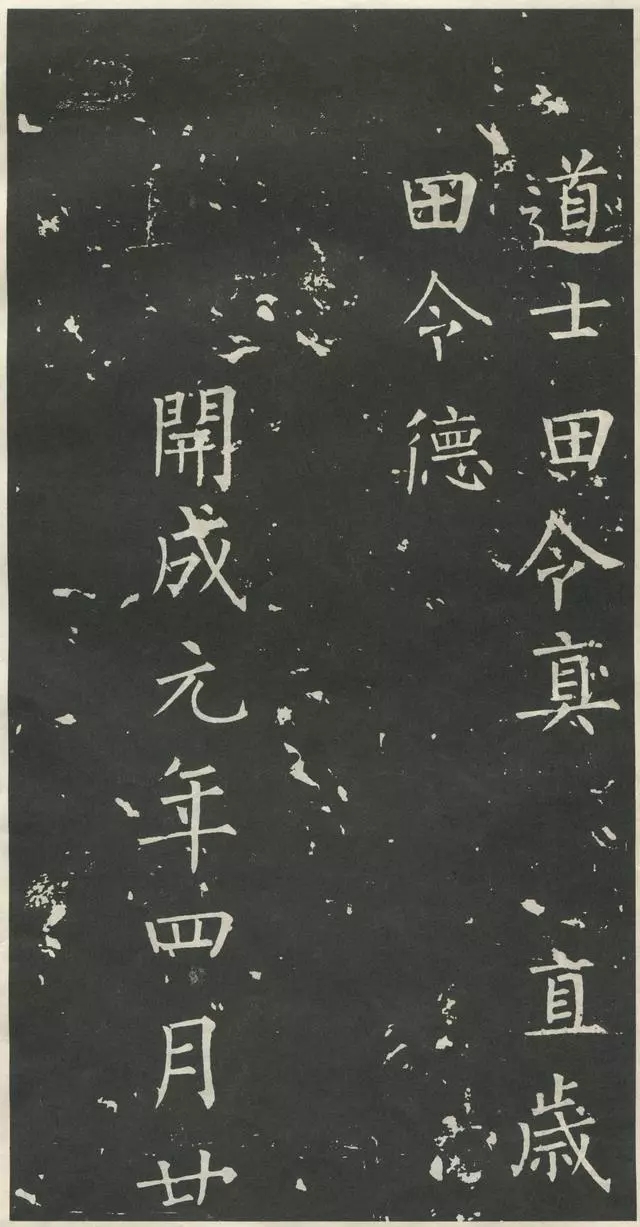 道士田令真　直歲
田令德
開成元年四月廿